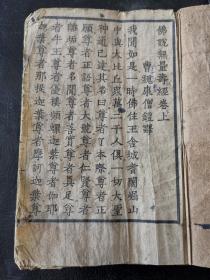 佛說無量壽經卷上
曹魏康僧鎧譯
我聞如是一時佛住王舍城耆闍崛山
中與大比丘衆萬二千人俱一切大聖
神通已達其名曰尊者了本際尊者正
願尊者正語尊者大號尊者仁賢尊者
離垢尊者名聞尊者善實尊者具足尊
者牛王尊者優樓頻螺迦葉尊者伽耶
迦葉尊者那提迦葉尊者摩訶迦葉尊